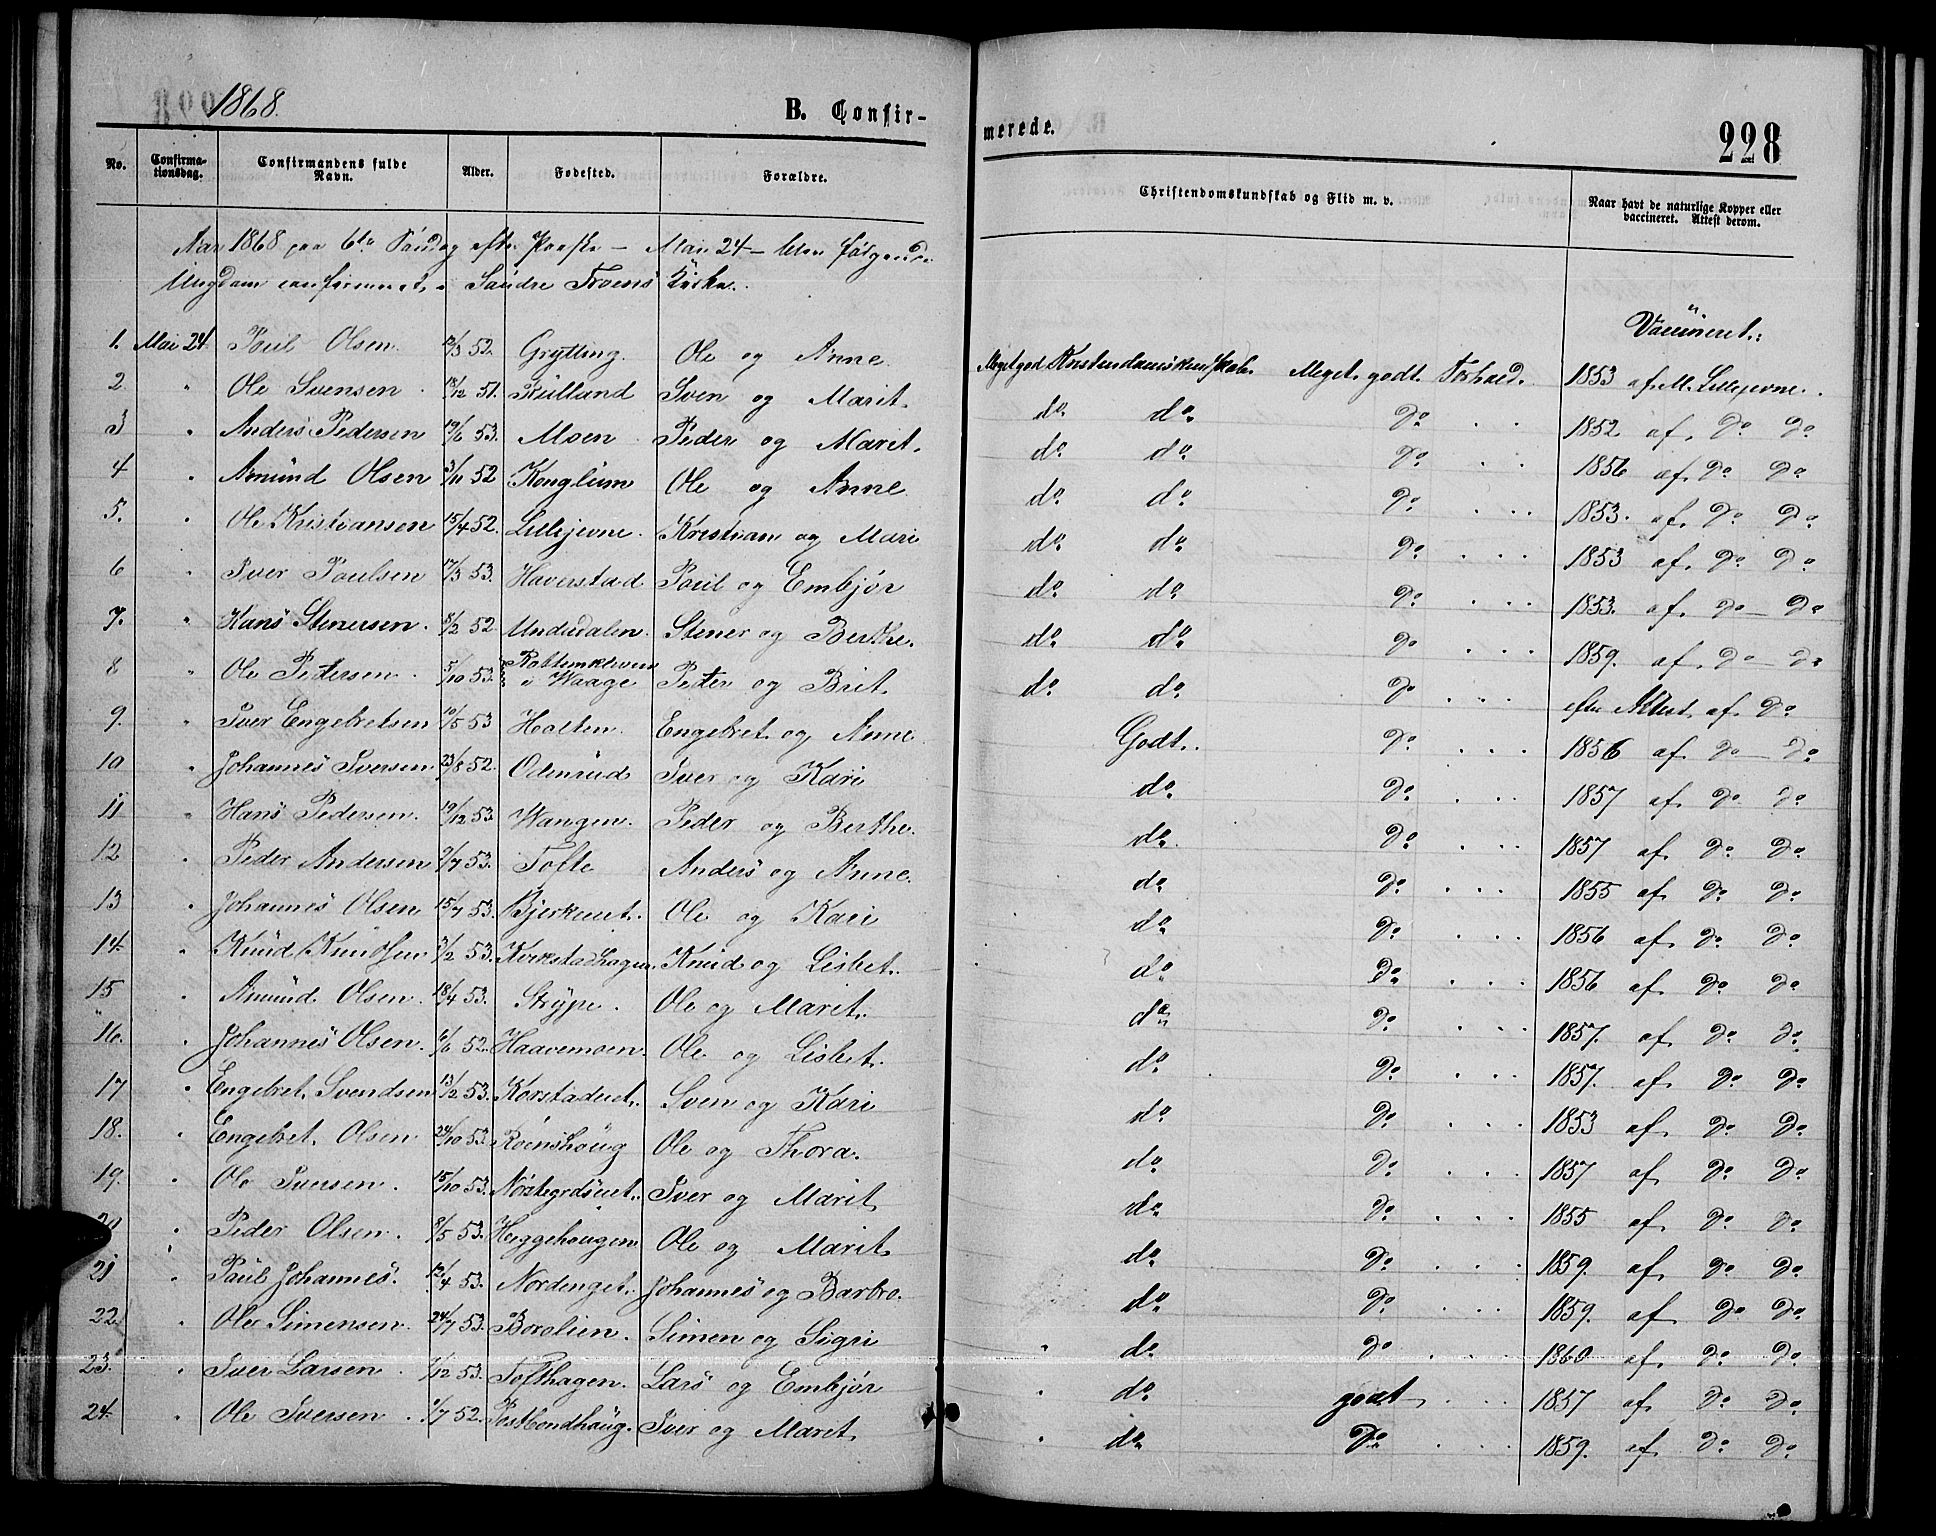 1868.
B. Confir-
merede.
228
No. Confirma-tionsdag. Confirmandens fulde Navn. Alder. Fødested. Forældre. Christendomskundskab og Flid m. v. Naar havt de naturlige Kopper eller vaccineret. Attest derom.
Aar 1868 paa 6te Søndag efter Paaske – Mai 24 – blev følgende
Ungdom confirmeret i Søndre Froens Kirke.
Vaccineret.
1. Mai 24 Poul Olsen 12/3 52. Grytting. Ole og Anne Meget god Kristendomskundskab. Meget godt Forhold. 1853 af M. Lillejevne.
2 " Ole Svensen 18/12 51. Rulland Sven og Marit. do do do 1852 af do do
3 " Anders Pedersen 19/6 53. Moen Peder og Marit. do do do 1856 af do do
4 " Amund Olsen 3/11 52 Konglum Ole og Anne do do do 1853. af do do
5. " Ole Kristiansen 15/4 52. Lillejevne. Kristian og Mari do do do 1853 af do do
6 " Iver Poulsen 17/3 53. Haverstad Poul og Embjør do do do 1853. af do do
7. " Hans Stenersen. 8/2 52 Undesdalen. Stener og Berthe. do do do 1859. af do do
8 " Ole Pedersen. 5/10 53. i Waage Peder og Brit do do do efter Attest af do
9. " Iver Engebretsen 10/5 53 Holten. Engebret og Anne Godt. do 1856 af do do
10 " Johannes Iversen 23/8 52. Odenrud Iver og Kari do do 1857 af do do
11 " Hans Pedersen. 19/12 53 Wangen. Peder og Berthe. do do 1857 af do do
12 " Peder Andersen 2/7 53. Tofte Anders og Anne. do do 1855 af do do
13 " Johannes Olsen 15/7 53. Bjerkeeiet. Ole og Kari do do 1856 af do do
14. " Knud Knudsen 3/2 53. Kirkstadhagen. Knud og Lisbet. do do 1856 af do do
15 " Amund Olsen. 18/4 53. Strype. Ole og Marit. do do 1857. af do do
16. " Johannes Olsen. 6/6 52. Haavemoen. Ole og Lisbet. do do 1857. af do do
17 " Engebret Svendsen 13/12 53. Korstadeiet. Sven og Kari do do 1853 af do do
18. " Engebret Olsen 24/10 53. Roenshoug Ole og Thora. do do 1857 af do do
19. " Ole Iversen. 15/10 53. Iver og Marit do do 1855 af do do
20 " Peder Olsen. 8/5 53. Heggehougen Ole og Marit do do 1859. af do do
21 " Poul Johannes. 12/4 53. Nordenget. Johannes og Barbro. do do 1859. af do do
22. " Ole Simensen. 24/7 53. Borolien. Simen og Sigri do do 1860 af do do
23. " Iver Larsen. 7/12 53. Tofthagen. Lars og Embjør do godt 1857 af do do
24. " Ole Iversen. 1/7 52. Iver og Marit do do 1859. af do do